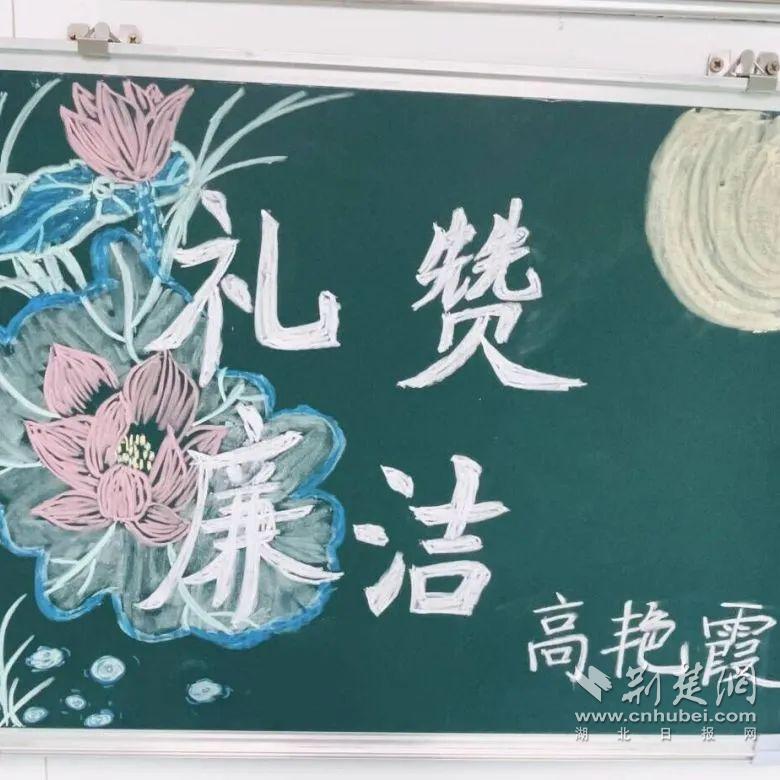 礼赞
廉洁
高艳霞
荆楚网
www.cnhubei.com
湖北日报网